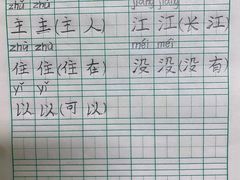 zhǔ zhǔ jiāng jiāng
主 主(主 人) 江 江(长 江)
zhù zhù méi méi
住 住(住 在) 没 没(没 有)
yǐ yǐ
以 以(可 以)